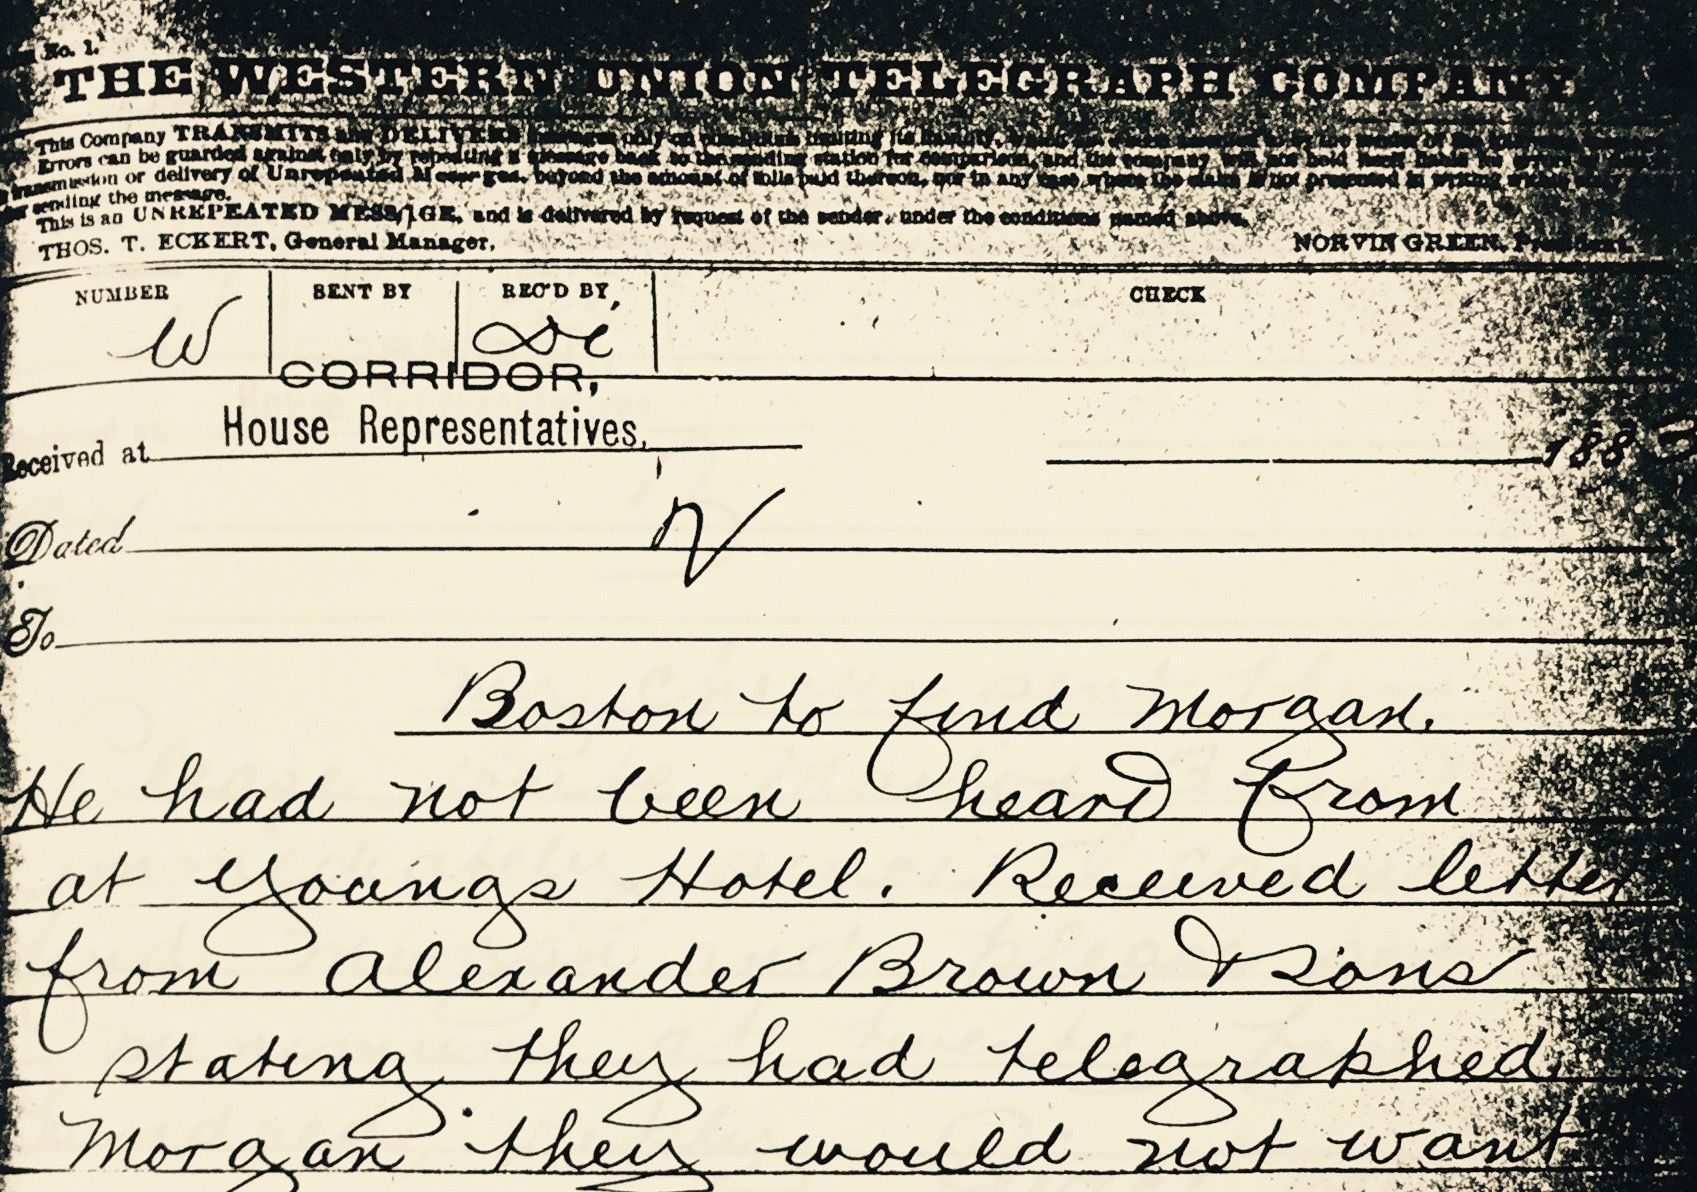 No. 1.
THE WESTERN UNION TELEGRAPH COMPANY
This Company TRANSMITS and DELIVERS messages only on conditions limiting its liability, which have been
Errors can be guarded against only by repeating a message back to the sending station for comparison, and the company will not hold itself liable for errors
transmission or delivery of Unrepeated Messages, beyond the amount of tolls paid thereon, nor in any case where the claim is not presented in writing within
sending the message.
This is an UNREPEATED MESSAGE, and is delivered by request of the sender, under the conditions named above.
THOS. T. ECKERT, General Manager.
NORVIN GREEN, President.
NUMBER SENT BY REC'D BY CHECK
W
CORRIDOR,
Received at House Representatives. 188
Dated
To
Boston to find Morgan.
He had not been heard from
at Youngs Hotel. Received letter
from Alexander Brown & Sons
stating they had telegraphed
Morgan they would not want